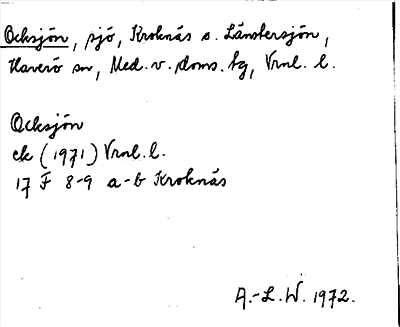 Ocksjön, sjö, Kroknäs o. Länstersjön,
Haverö sn, Med. v. doms. tg, Vrnl. l.
Ocksjön
ek (1971) Vrnl. l.
17 F 8-9 a-b Kroknäs
A.-L. W. 1972.